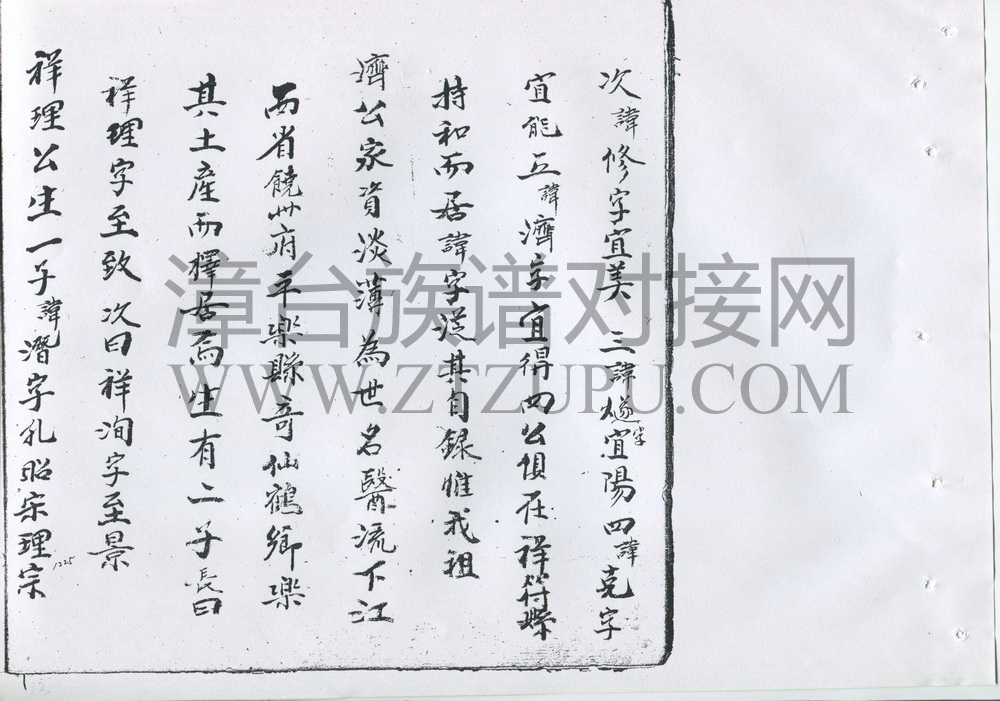 次諱修字宜美三諱燧字宜陽四諱克字
宜能五諱濟字宜得四公俱在祥符縣
持和而居諱字從其自録惟我祖
濟公家資淡薄為世名醫流下江
西省饒州府平樂縣奇仙鶴鄉樂
其土產而擇居焉生有二子長曰
祥理字至致次曰祥洵字至景
祥理公生一子諱潛字孔昭宋理宗
1225
漳台族谱对接网
WWW.ZTZUPU.COM